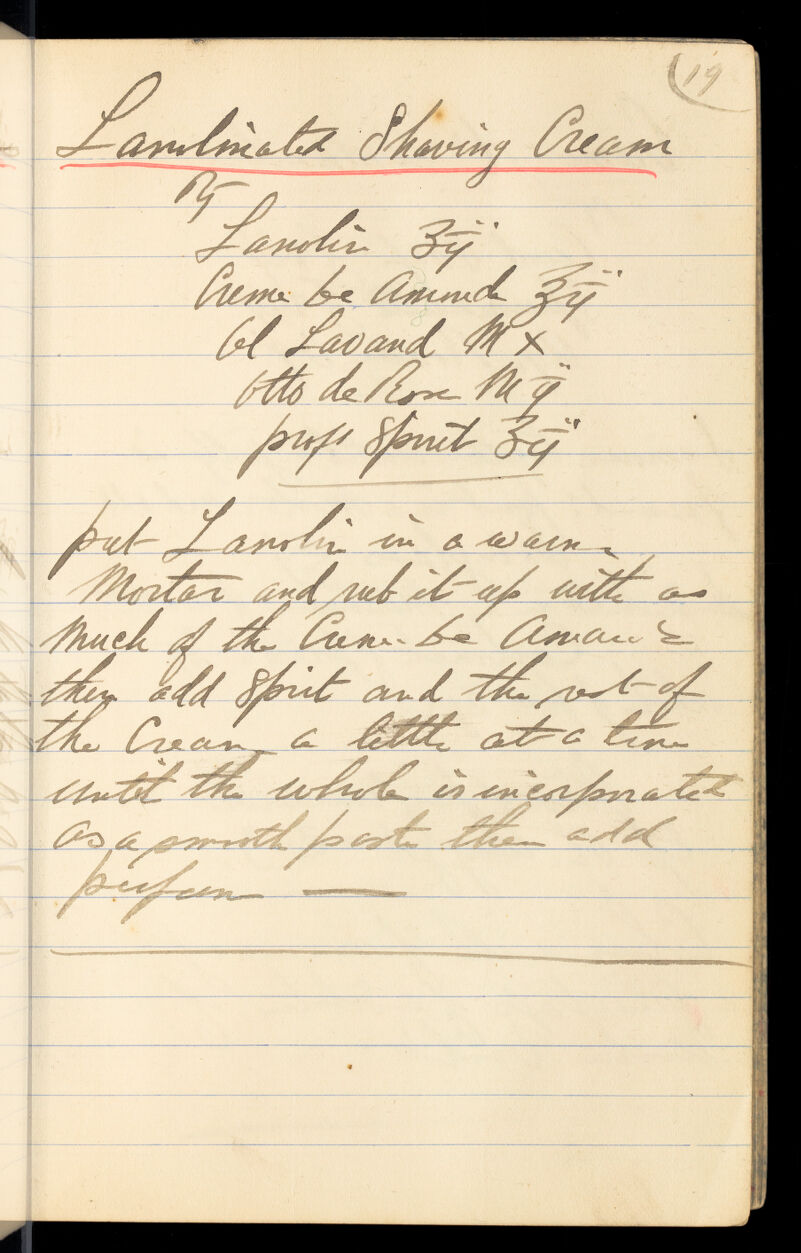 19
Lanolinated Shaving Cream
℞
Lanolin ʒij
Creme be Amande ʒij
Ol Lavand M x
Otto de Rose M ij
proof Spirit ʒij
put Lanolin in a warm
Mortar and rub it up with as
Much of the Creme be Amande
then add Spirit and the rest of
the Cream a little at a time
until the whole is incorporated
as a smooth paste then add
perfume —